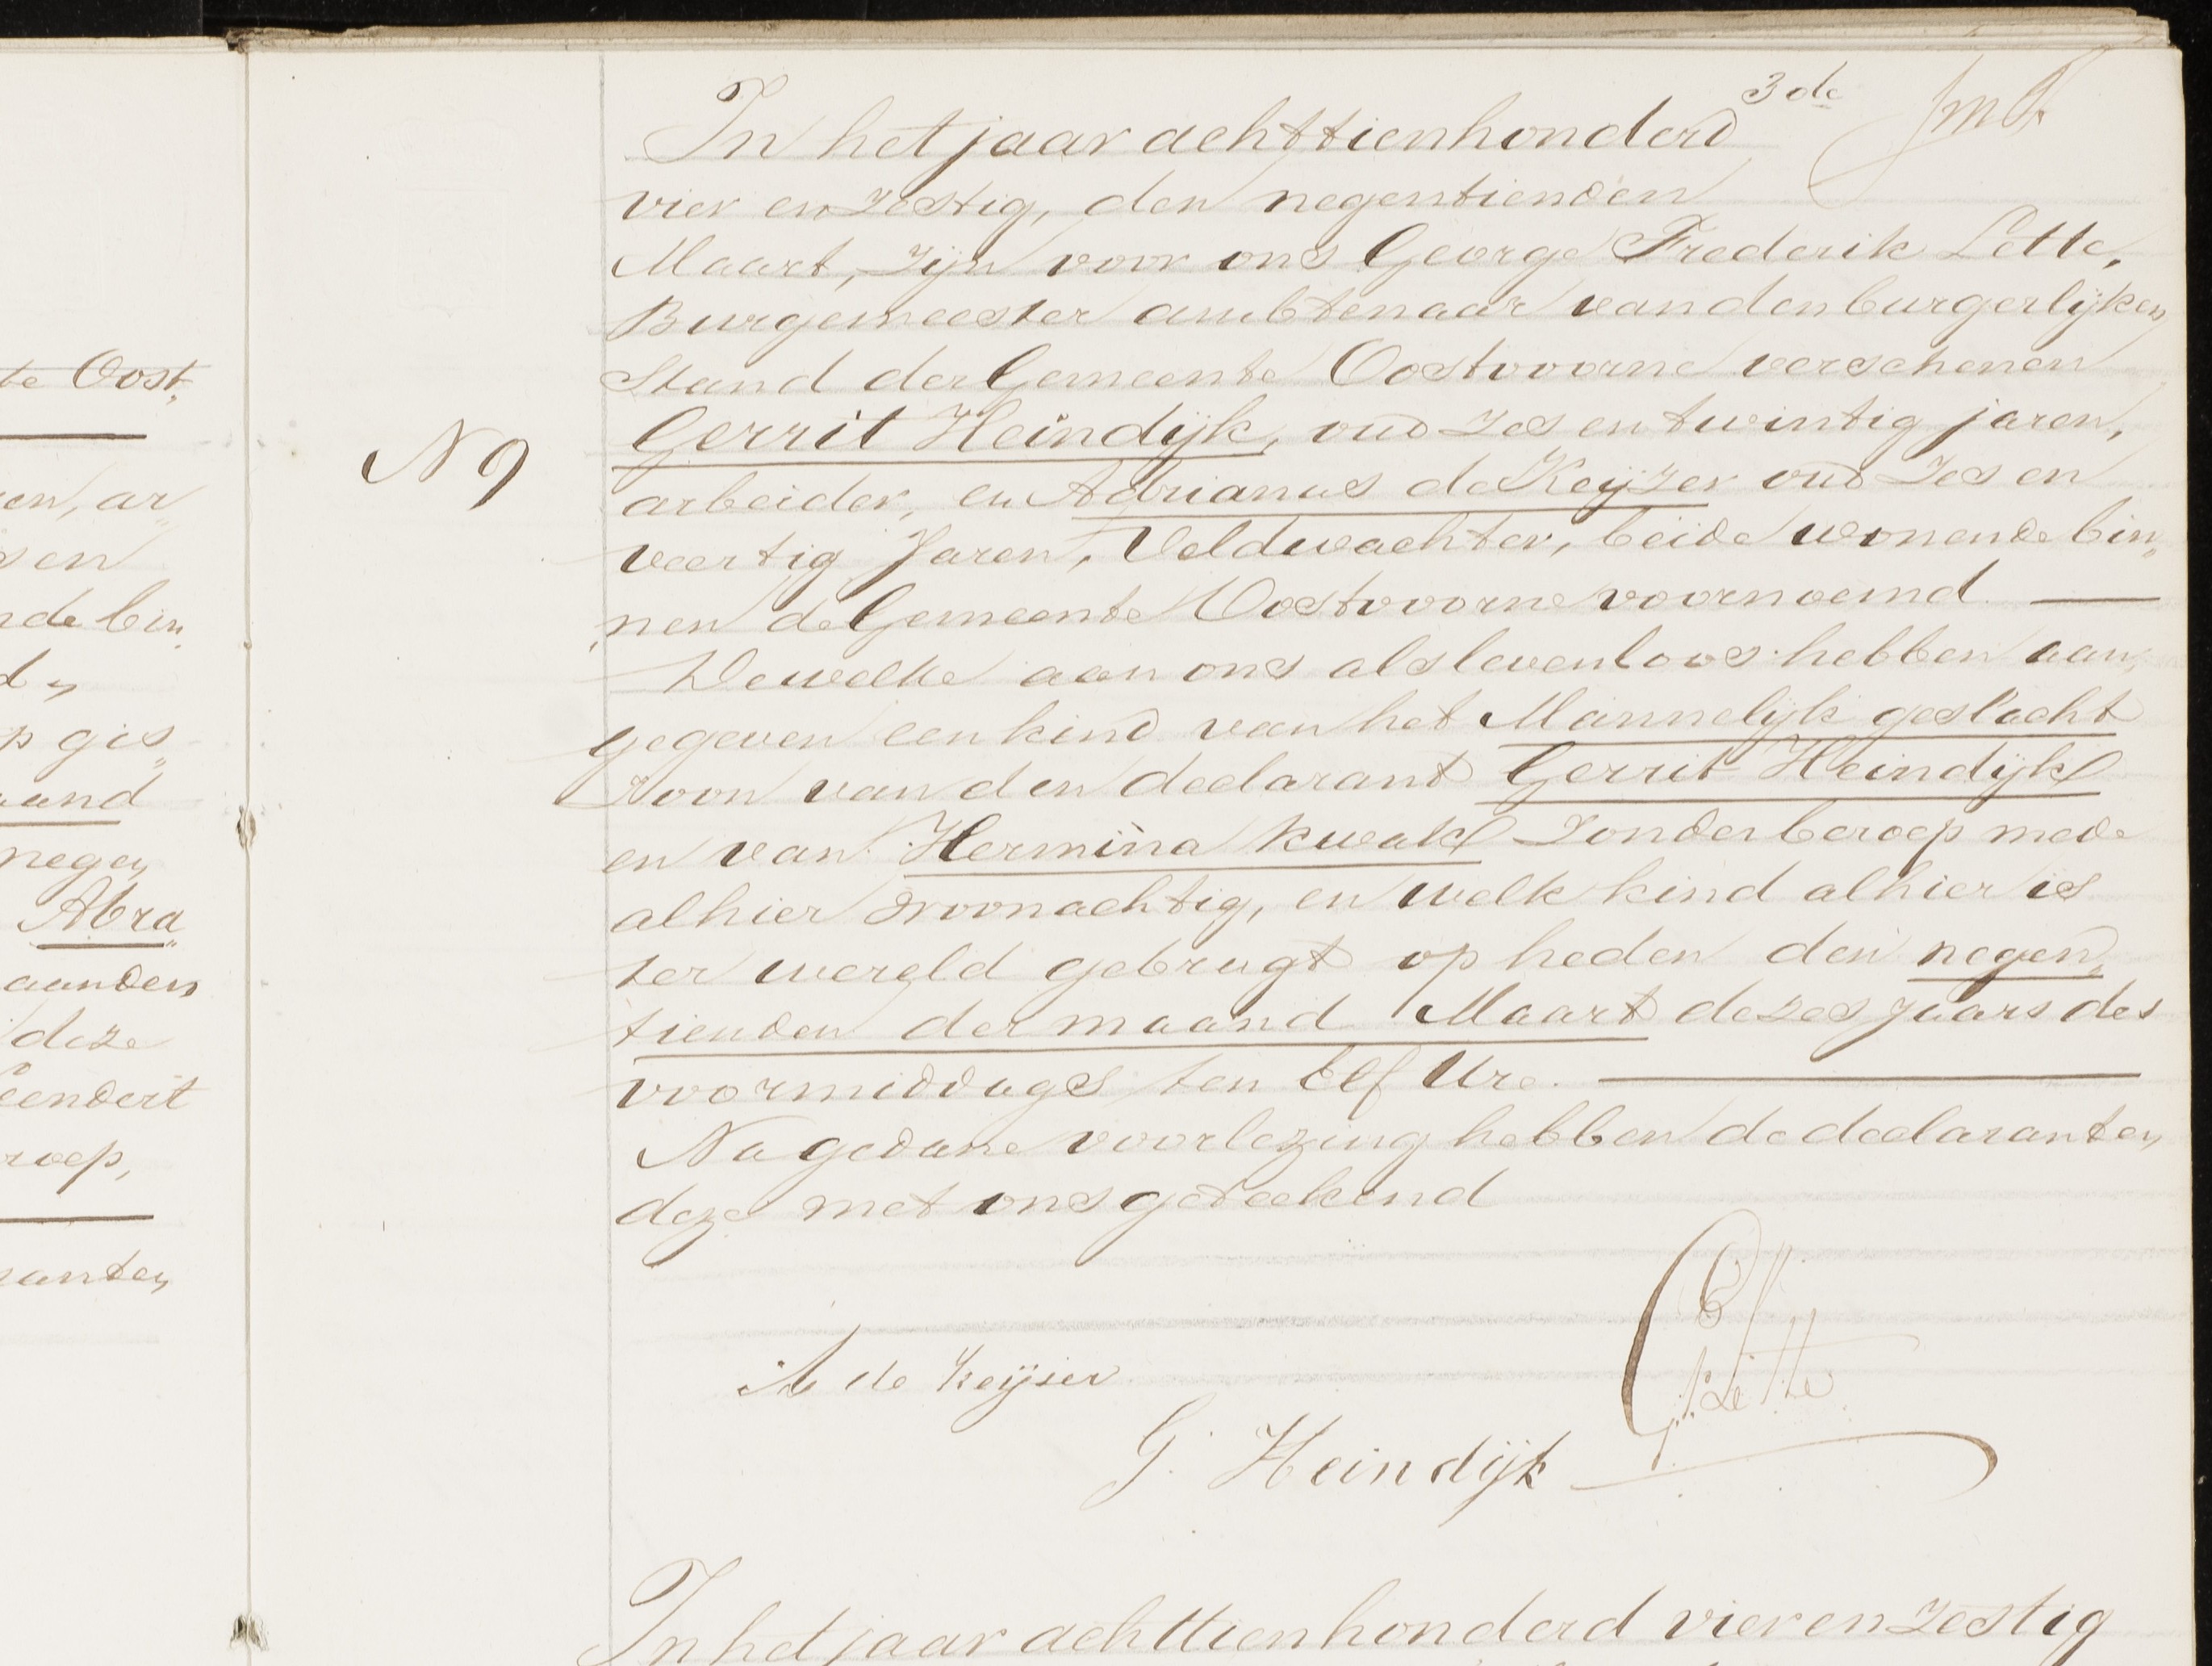 te Oost„
en, ar„
sen
nde bin„
d„
p gis„
aand
negen
Abra„
aanden
deze
eendert
roep,
ranten
3de
In het jaar achttienhonderd
vier en zestig, den negentienden
Maart, zijn voor ons George Frederik Lette,
Burgemeester ambtenaar van den burgerlijken
Stand der Gemeente Oostvoorne verschenen
N 9
Gerrit Heindijk, oud zes en twintig jaren,
arbeider, en Adrianus de Keijzer oud zes en
veertig Jaren, Veldwachter, beide wonende bin„
„nen de Gemeente Oostvoorne voornoemd —
Dewelke aan ons als levenloos hebben aan„
gegeven een kind van het Mannelijk geslacht
zoon van den declarant Gerrit Heindijk
en van Hermina Kwak zonder beroep mede
alhier woonachtig, en welk kind alhier is
ter wereld gebragt op heden den negen„
tienden der maand Maart dezes Jaars des
voormiddags ten Elf Ure. —
Na gedane voorlezing hebben de declaranten
deze met ons geteekend
A de Keijser
Lette
G. Heindijk
In het jaar achttienhonderd vier en zestig